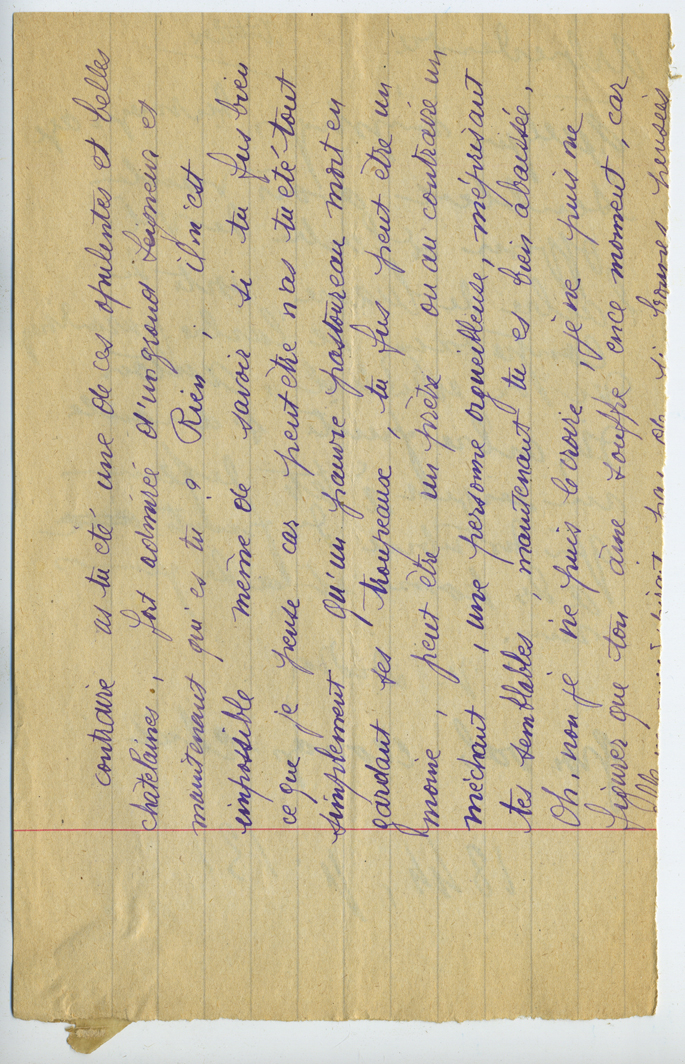 contraire as tu été une de ces opulentes et belles
chatelaines, fort admirée d'un grand seigneur et
maintenant qui es tu ? Rien, il m'est
impossible même de savoir si tu fus bien
ce que je pense car peut être n'as tu été tout
simplement qu'un pauvre pastoureau mort en
gardant ses troupeaux, tu fus peut être un
moine, peut être un prêtre ou au contraire un
méchant, une personne orgueilleuse, méprisant
tes semblables, maintenant tu es bien abaissée,
Oh, non je ne puis le croire, je ne puis me
figurer que ton âme souffre en ce moment, car
si bonnes pensées